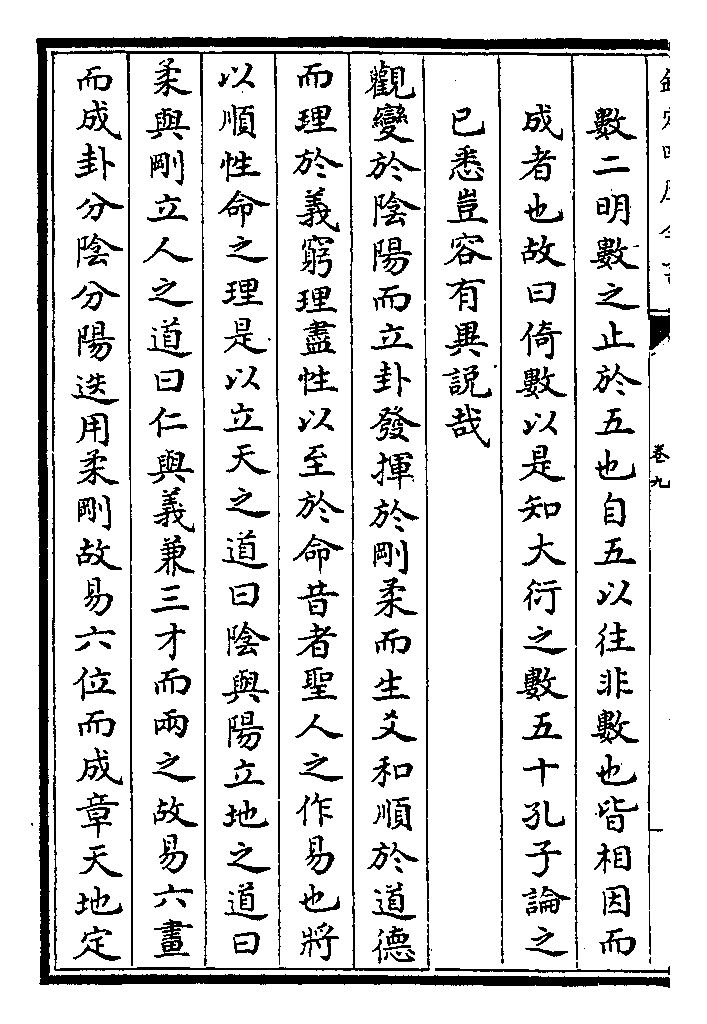 數二明數之止於五也自五以往非數也皆相因而
成者也故曰倚數以是知大衍之數五十孔子論之
已悉豈容有異説哉
觀變於陰陽而立卦發揮於剛柔而生爻和順於道德
而理於義窮理盡性以至於命昔者聖人之作易也將
以順性命之理是以立天之道曰陰與陽立地之道曰
柔與剛立人之道曰仁與義兼三才而兩之故易六畫
而成卦分陰分陽迭用柔剛故易六位而成章天地定
卷九